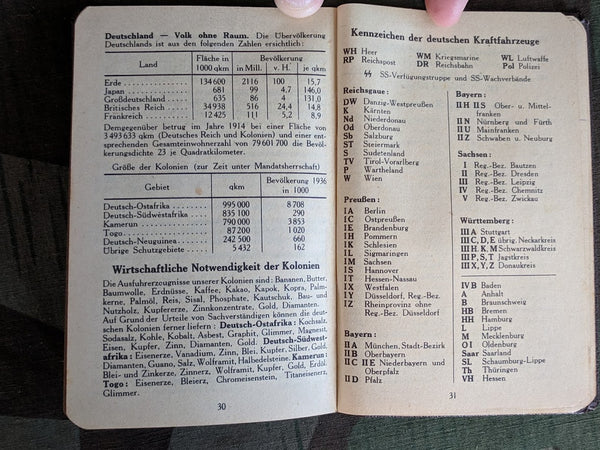 Deutschland — Volk ohne Raum. Die Übervölkerung
Deutschlands ist aus den folgenden Zahlen ersichtlich:
Land Fläche in 1000 qkm Bevölkerung in Mill. v. H. je qkm
Erde 134600 2116 100 15,7
Japan 681 99 4,7 146,0
Großdeutschland 635 86 4 131,0
Britisches Reich 34938 516 24,4 14,8
Frankreich 12425 111 5,2 8,9
Demgegenüber betrug im Jahre 1914 bei einer Fläche von
3 493 633 qkm (Deutsches Reich und Kolonien) und einer ent-
sprechenden Gesamteinwohnerzahl von 79 601 700 die Bevöl-
kerungsdichte 23 je Quadratkilometer.
Größe der Kolonien (zur Zeit unter Mandatsherrschaft)
Gebiet qkm Bevölkerung 1936 in 1000
Deutsch-Ostafrika 995 000 8 708
Deutsch-Südwestafrika 835 100 290
Kamerun 790 000 3 853
Togo 87 200 1 020
Deutsch-Neuguinea 242 500 660
Übrige Schutzgebiete 5 432 162
Wirtschaftliche Notwendigkeit der Kolonien
Die Ausfuhrerzeugnisse unserer Kolonien sind: Bananen, Butter,
Baumwolle, Erdnüsse, Kaffee, Kakao, Kapok, Kopra, Palm-
kerne, Palmöl, Reis, Sisal, Phosphate, Kautschuk, Bau- und
Nutzholz, Kupfererze, Zinkonzentrate, Gold, Diamanten.
Auf Grund der Urteile von Sachverständigen können die deut-
schen Kolonien ferner liefern: Deutsch-Ostafrika: Kochsalz,
Sodasalz, Kohle, Kobalt, Asbest, Graphit, Glimmer, Magnesit,
Eisen, Kupfer, Zinn, Diamanten, Gold. Deutsch-Südwest-
afrika: Eisenerze, Vanadium, Zinn, Blei, Kupfer, Silber, Gold,
Diamanten, Guano, Salz, Wolframit, Halbedelsteine. Kamerun:
Blei- und Zinkerze, Zinnerz, Wolframit, Kupfer, Gold, Erdöl.
Togo: Eisenerze, Bleierz, Chromeisenstein, Titaneisenerz,
Glimmer.
30
Kennzeichen der deutschen Kraftfahrzeuge
WH Heer WM Kriegsmarine WL Luftwaffe
RP Reichspost DR Reichsbahn Pol Polizei
SS-Verfügungstruppe und SS-Wachverbände
Reichsgaue:
DW Danzig-Westpreußen
K Kärnten
Nd Niederdonau
Od Oberdonau
Sb Salzburg
ST Steiermark
S Sudetenland
TV Tirol-Vorarlberg
P Wartheland
W Wien
Preußen:
IA Berlin
IC Ostpreußen
IE Brandenburg
IH Pommern
IK Schlesien
IL Sigmaringen
IM Sachsen
IS Hannover
IT Hessen-Nassau
IX Westfalen
IY Düsseldorf, Reg.-Bez.
IZ Rheinprovinz ohne
Reg.-Bez. Düsseldorf
Bayern:
II A München, Stadt-Bezirk
II B Oberbayern
II C II E Niederbayern und
Oberpfalz
II D Pfalz
Bayern:
II H II S Ober- u. Mittel-
franken
II N Nürnberg und Fürth
II U Mainfranken
II Z Schwaben u. Neuburg
Sachsen:
I Reg.-Bez. Bautzen
II Reg.-Bez. Dresden
III Reg.-Bez. Leipzig
IV Reg.-Bez. Chemnitz
V Reg.-Bez. Zwickau
Württemberg:
III A Stuttgart
III C, D, E übrig. Neckarkreis
III H, K, M Schwarzwaldkreis
III P, S, T Jagstkreis
III X, Y, Z Donaukreis
IV B Baden
A Anhalt
B Braunschweig
HB Bremen
HH Hamburg
L Lippe
M Mecklenburg
O I Oldenburg
Saar Saarland
SL Schaumburg-Lippe
Th Thüringen
VH Hessen
31